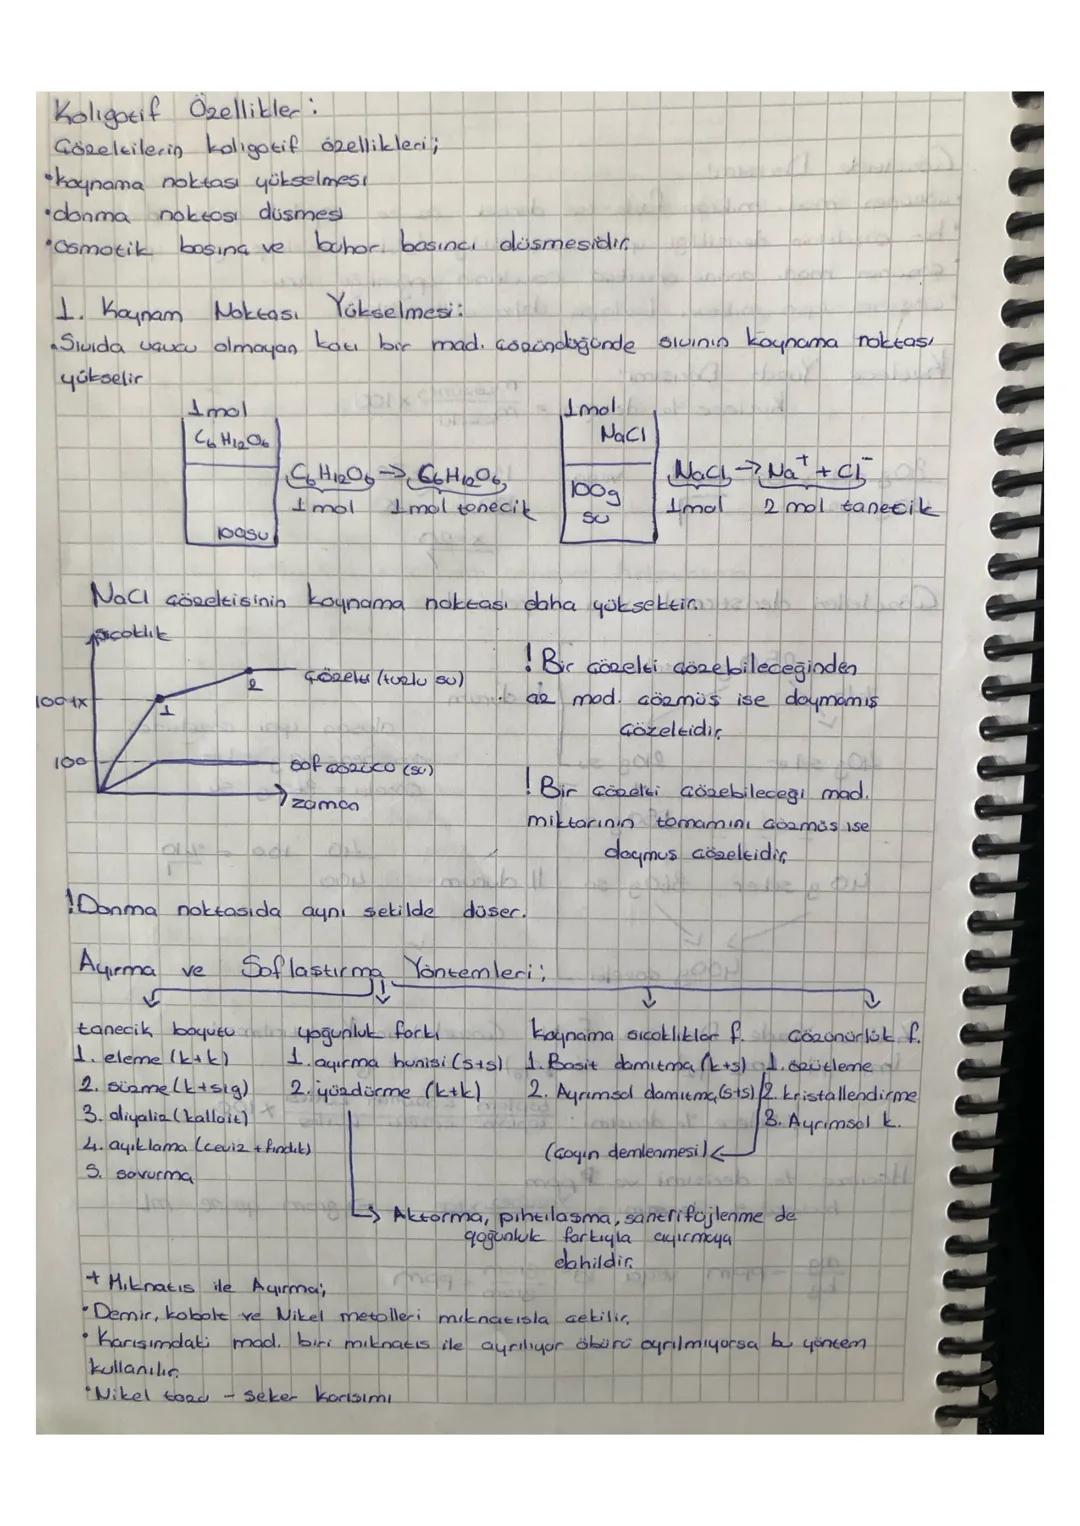 Koligatif Özellikler:
Çözeltilerin koligatif özellikleri;
•kaynama noktası yükselmesi
•donma noktası düşmesi
•Osmotik basınç ve buhar basıncı düşmesidir.
1. Kaynam Noktası Yükselmesi:
•Sıvıda uçucu olmayan katı bir mad. çözündüğünde sıvının kaynama noktası
yükselir
1mol
C6H12O6
100su
C6H12O6 → C6H12O6
1mol 1mol tanecik
1mol
NaCl
100g
su
NaCl → Na+ + Cl-
1mol 2 mol tanecik
NaCl çözeltisinin kaynama noktası daha yüksektir.
sıcaklık
100+x
100
1
2
çözelti (tuzlu su)
saf çözücü (su)
zaman
! Bir çözelti çözebileceğinden
az mad. çözmüş ise doymamış
çözeltidir.
! Bir çözelti çözebileceği mad.
miktarının tamamını çözmüş ise
doymuş çözeltidir.
!Donma noktasıda aynı şekilde düşer.
Ayırma ve Saflaştırma Yöntemleri;
tanecik boyutu
1. eleme (k+k)
2. süzme (k+sıg)
3. diyaliz (kalloit)
4. ayıklama (ceviz + fındık)
5. savurma
yoğunluk farkı
1. ayırma hunisi (s+s)
2. yüzdürme (k+k)
kaynama sıcaklıklar f.
1. Basit damıtma (k+s)
2. Ayrımsal damıtma (s+s)
çözünürlük f.
1. özütleme
2. kristallendirme
3. Ayrımsal k.
(çayın demlenmesi)
Aktarma, pıhtılaşma, santrifüjlenme de
yoğunluk farkıyla ayırmaya
dahildir.
+ Mıknatıs ile Ayırma;
•Demir, kobalt ve Nikel metalleri mıknatısla çekilir.
•Karışımdaki mad. biri mıknatıs ile ayrılıyor öbürü ayrılmıyorsa bu yöntem
kullanılır.
•Nikel tozu - şeker karışımı